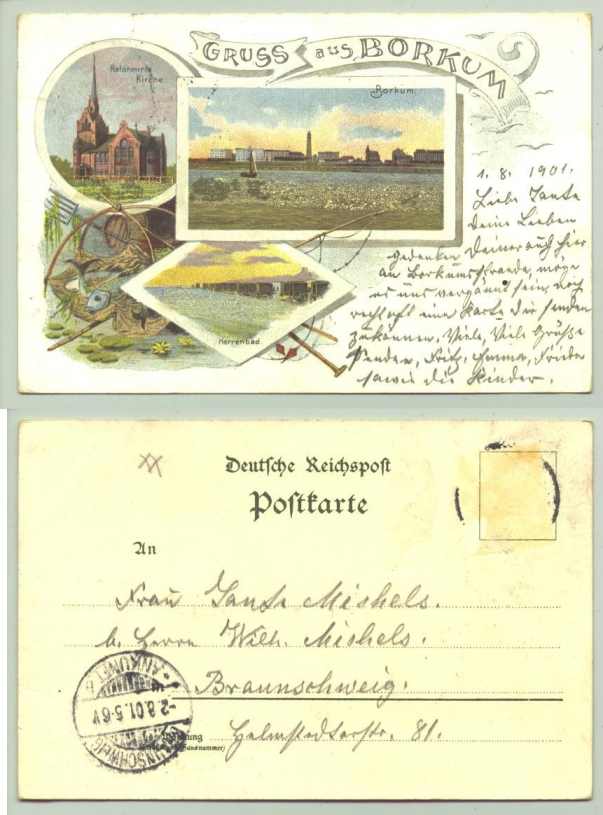 GRUSS aus BORKUM
Reformirte
Kirche
Borkum.
Herrenbad.
1. 8. 1901.
Liebe Tante
Deine Lieben
gedenken Deiner auch hier
am Borkumstrande, möge
es uns vergönnt sein noch
recht oft eine Karte Dir senden
zu können. Viele, viele Grüße
senden, Fritz, Emma, Frieda
sowie die Kinder.
Deutsche Reichspost
Postkarte
An
Frau Tante Mishels.
b. Herrn Wilh. Mishels.
Braunschweig.
Helmstedterstr. 81.
ANKUNFT
-2.8.01.5-6N
BRAUNSCHWEIG